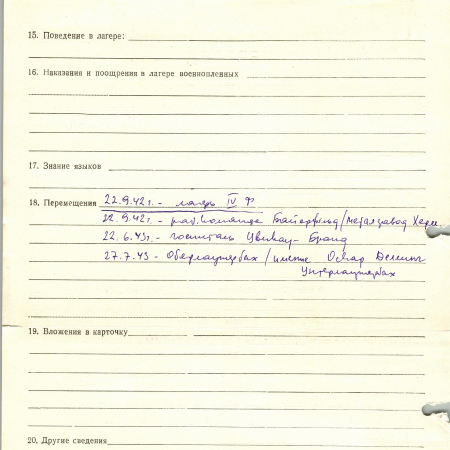 15. Поведение в лагере:
16. Наказания и поощрения в лагере военнопленных
17. Знание языков
18. Перемещения 22.9.42 г. - лагерь IV Ф
22.9.42 г. - раб. команда Байерфельд / металзавод
22.6.43 г. - госпиталь Цвикау - Бранд
27.7.43 - Оберлаутербах / имение Оскар
Унтерлаутербах
19. Вложения в карточку
20. Другие сведения